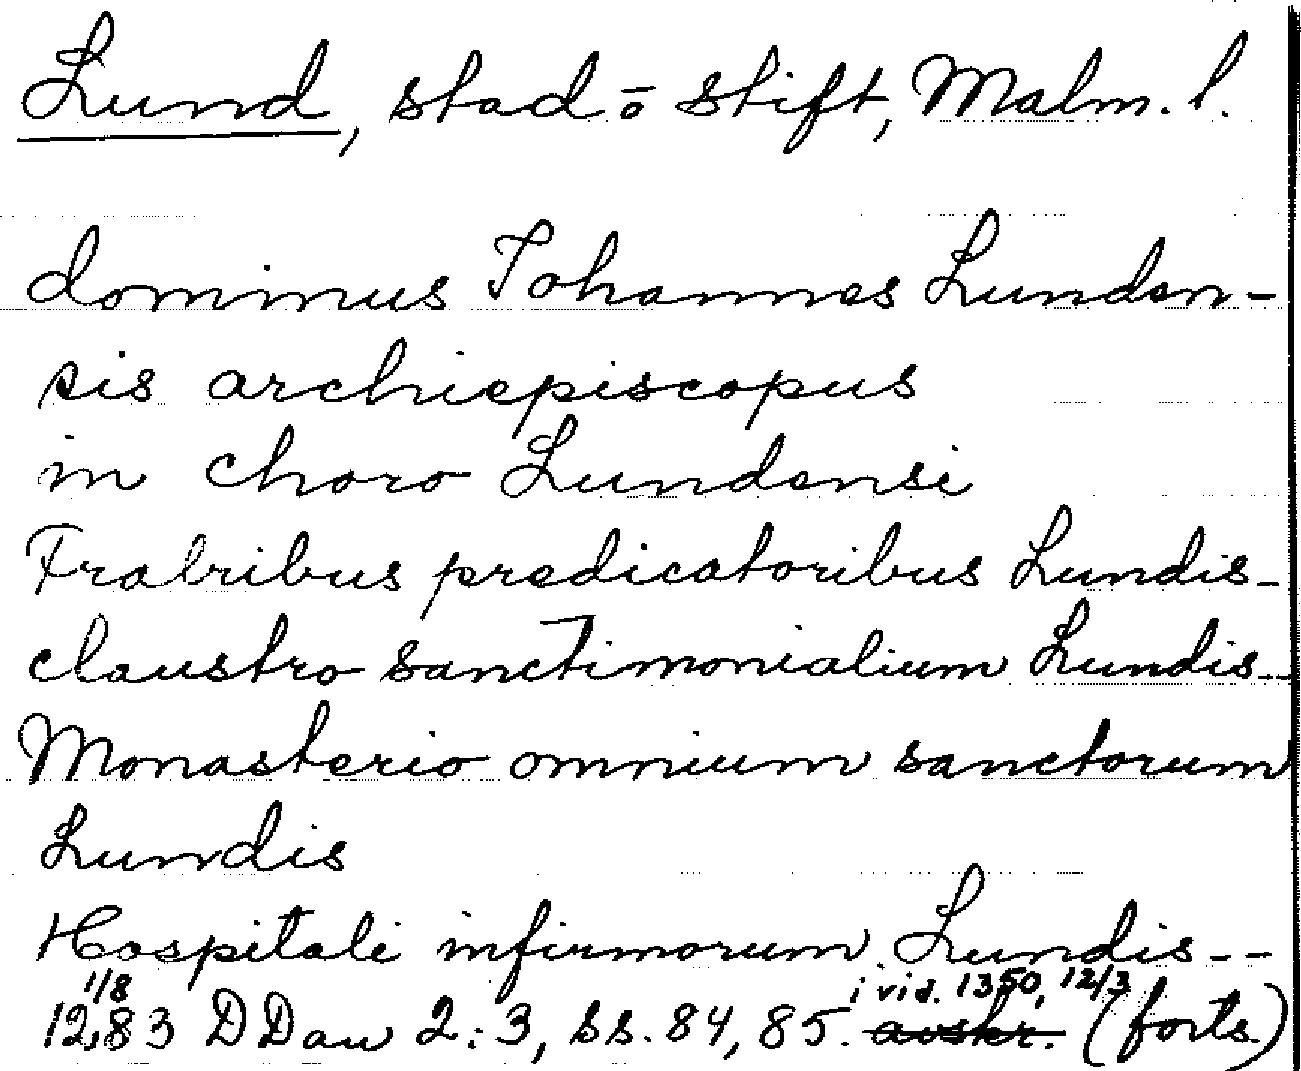 Lund, stad o stift, Malm. l.
dominus Johannes Lunden-
sis archiepiscopus
in choro Lundensi
Fratribus predicatoribus Lundis-
claustro sanctimonialium Lundis--
Monasterio omnium sanctorum
Lundis
Hospitali infirmorum Lundis--
1283 1/8 DDan 2:3, ss. 84, 85. avskr. i vid. 1350, 12/3 (forts.)